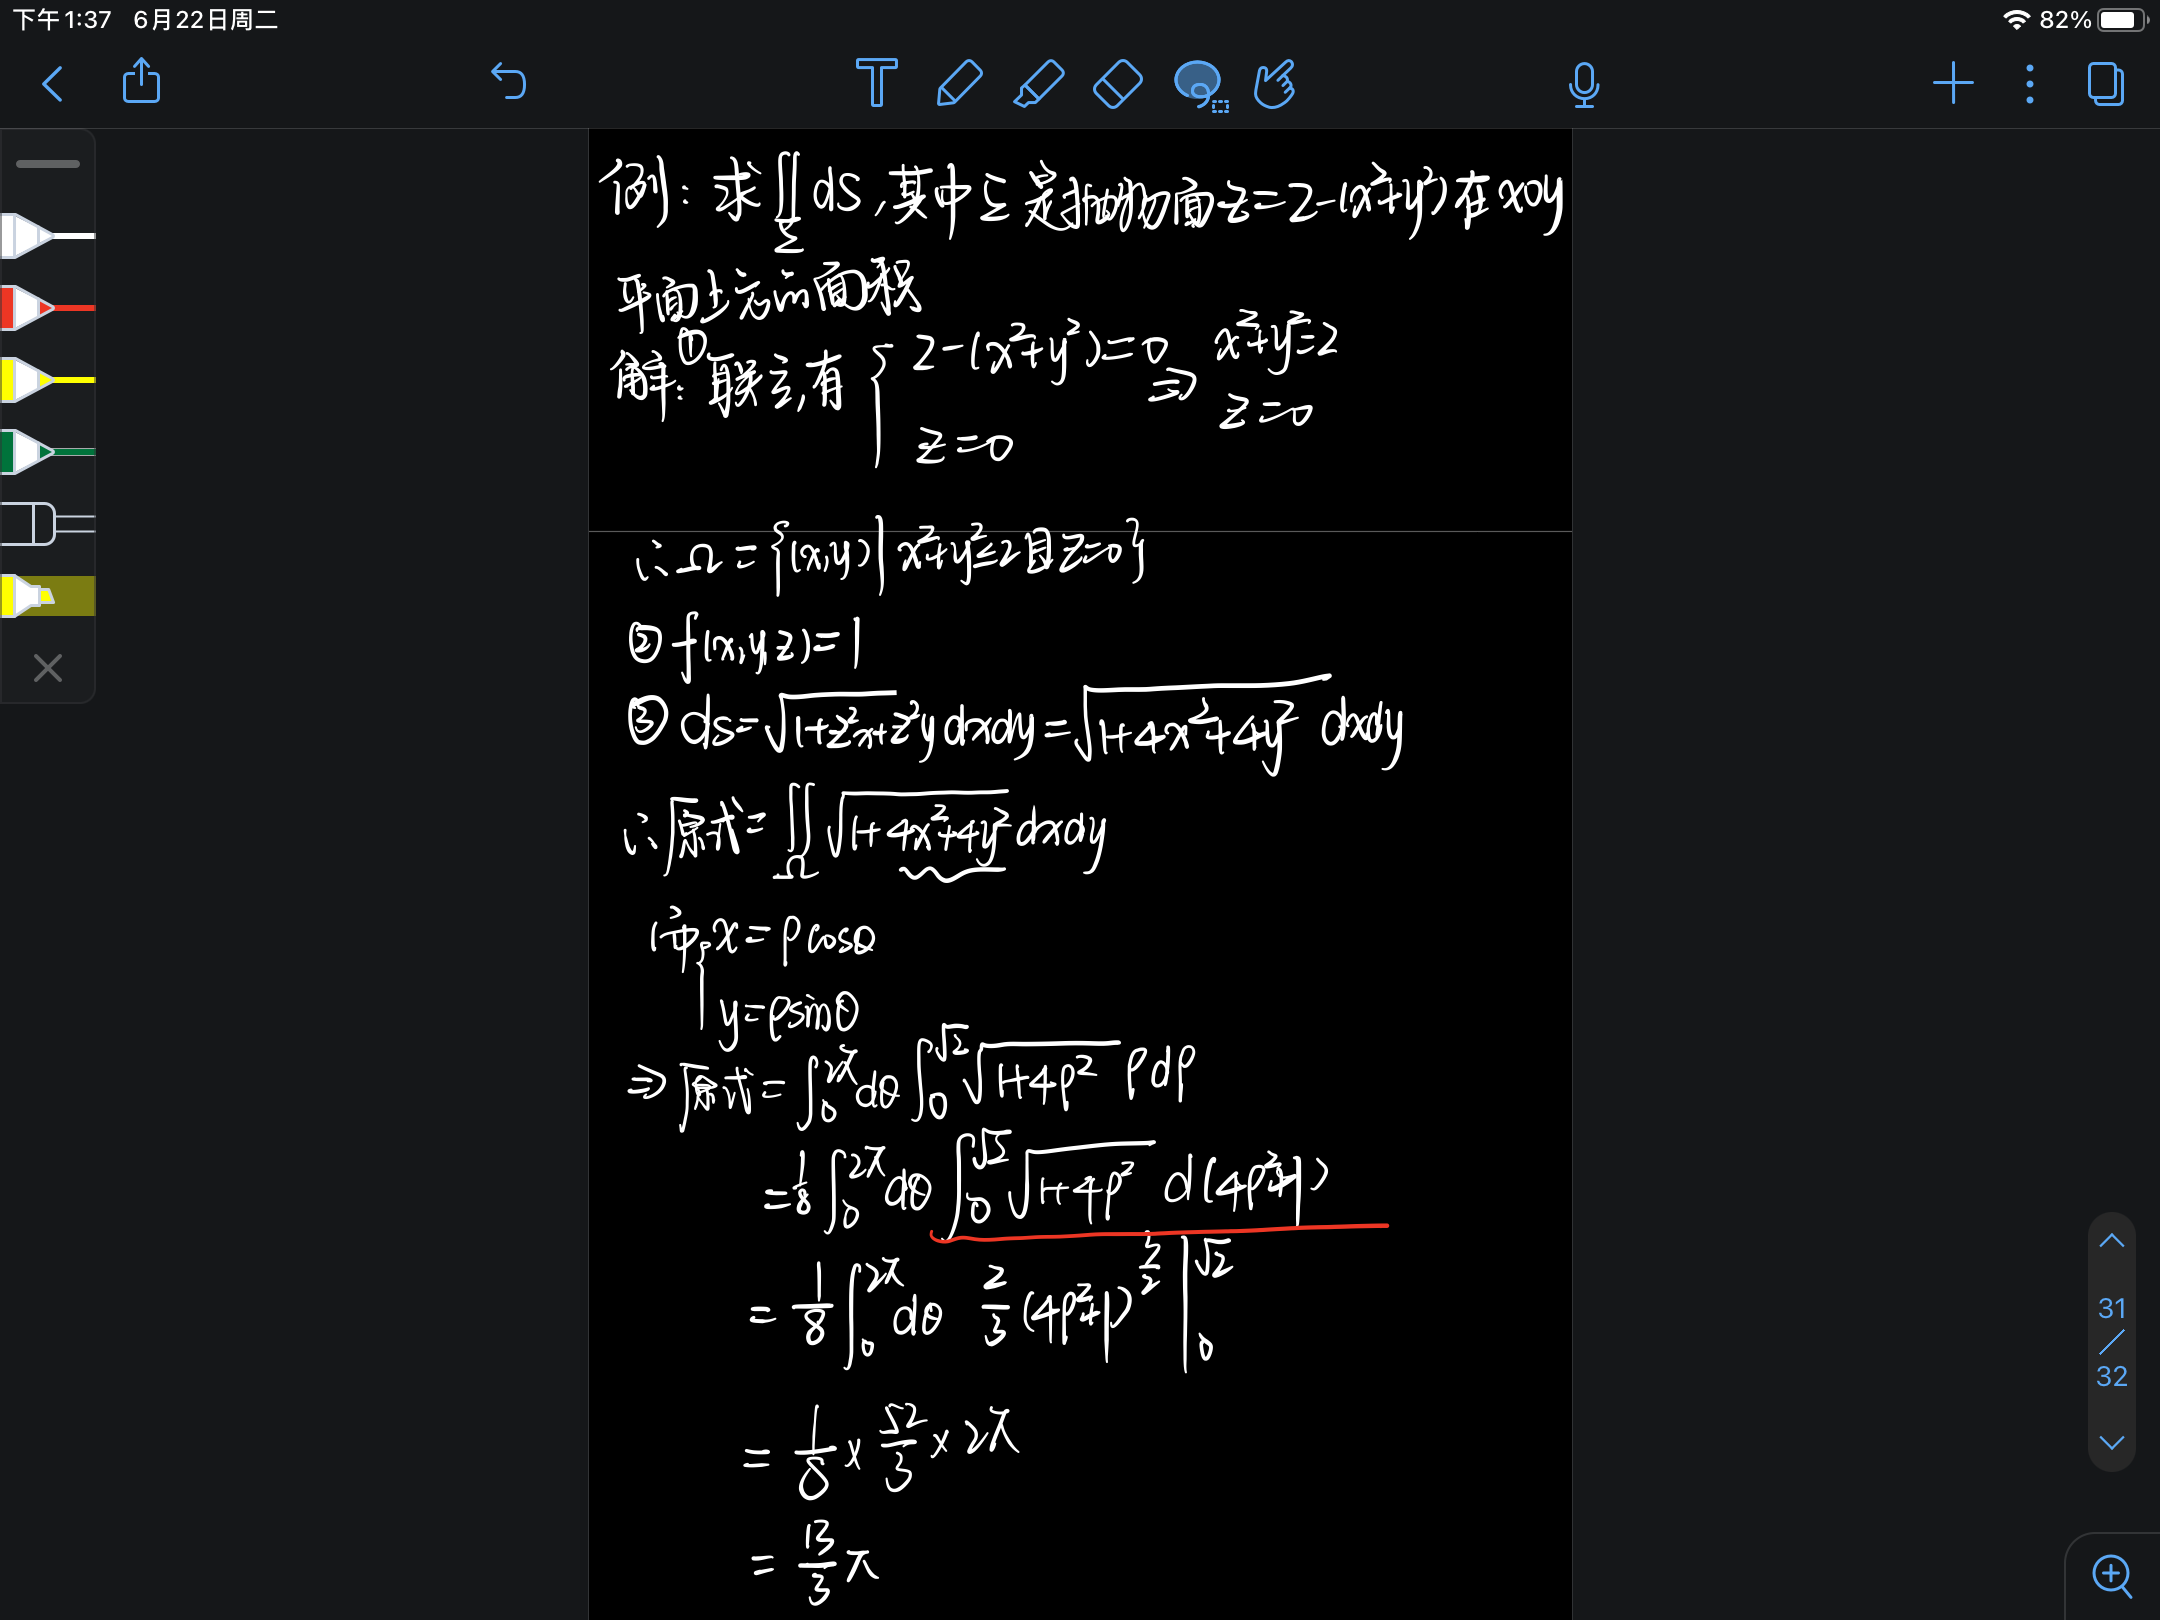 下午1:37 6月22日周二
82%
例：求∬_Σ dS，其中Σ是抛物面z=2-(x²+y²)在xoy
平面上方的面积
解：①联立，有 { 2-(x²+y²)=0 ⇒ x²+y²=2
z=0 z=0
∴Ω={(x,y)|x²+y²≤2且z=0}
②f(x,y,z)=1
③ds=√(1+z²x+z²y) dxdy=√(1+4x²+4y²) dxdy
∴原式=∬_Ω √(1+4x²+4y²) dxdy
令{ x=ρcosθ
y=ρsinθ
⇒原式=∫₀^2π dθ ∫₀^√2 √(1+4ρ²) ρdρ
=1/8 ∫₀^2π dθ ∫₀^√2 √(1+4ρ²) d(4ρ²+1)
=1/8 ∫₀^2π dθ 2/3 (4ρ²+1)^3/2 |₀^√2
=1/8×52/3×2π
=13/3 π
31
/
32